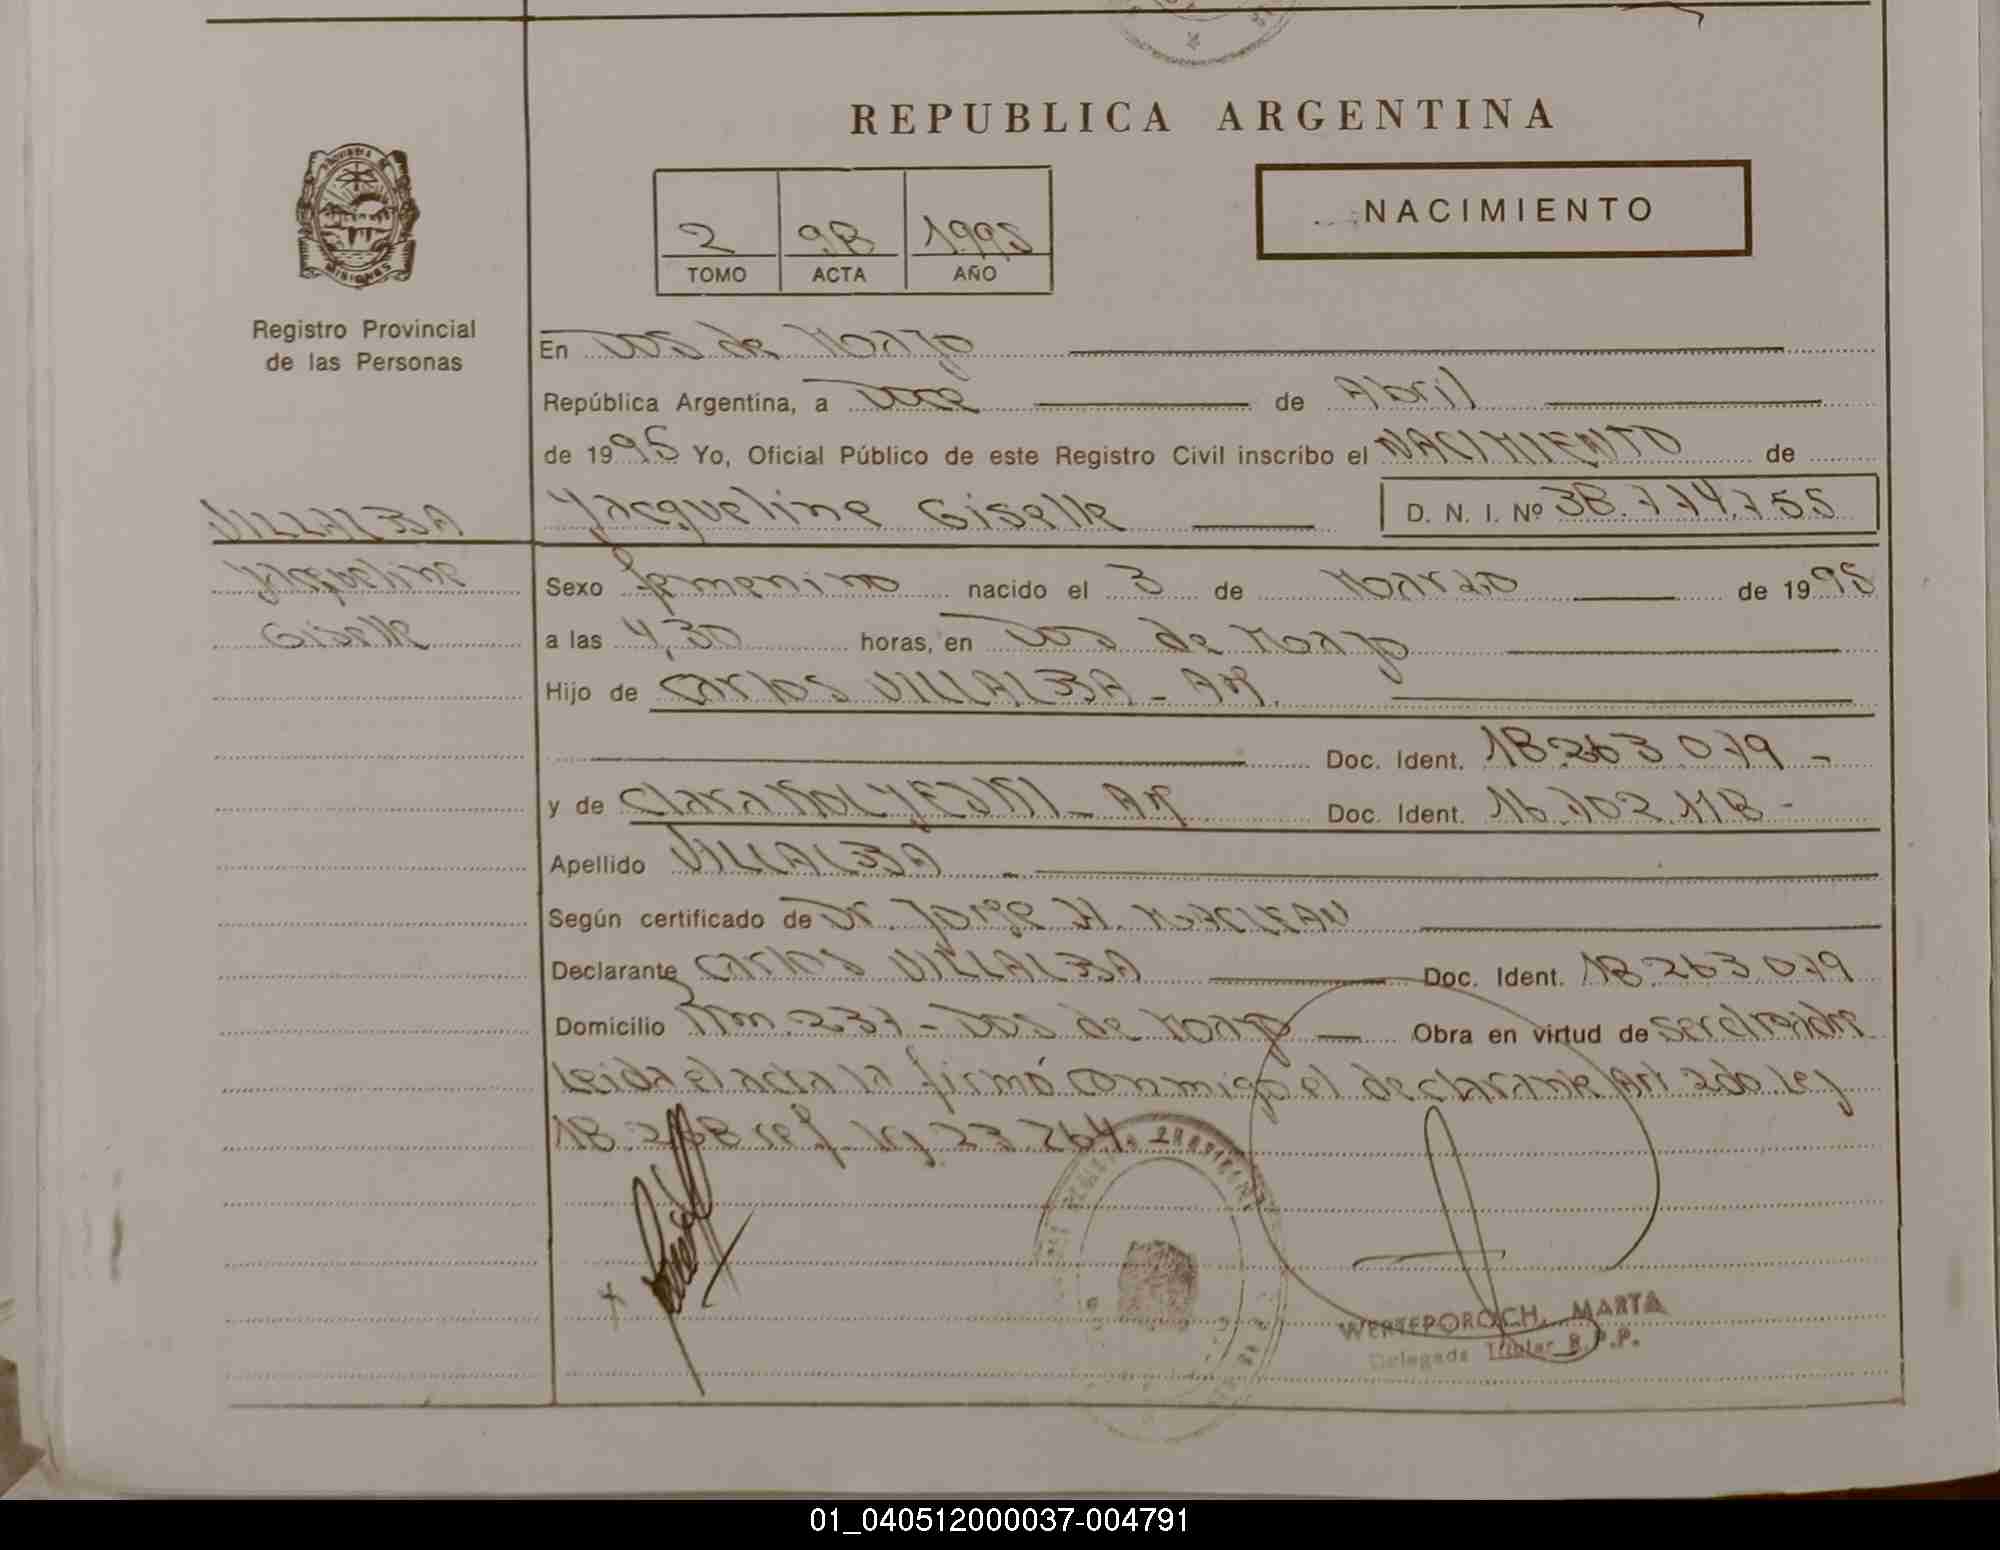 REPUBLICA ARGENTINA
NACIMIENTO
2 98 1995
TOMO ACTA AÑO
MISIONES
Registro Provincial
de las Personas
En Dos de Mayo
República Argentina, a Doce de Abril
de 1995 Yo, Oficial Público de este Registro Civil inscribo el NACIMIENTO de
Yacqueline Giselle D. N. I. Nº 38.774.755
VILLALBA
Yacqueline
Giselle
Sexo femenino nacido el 3 de Marzo de 1995
a las 4,30 horas, en Dos de Mayo
Hijo de Carlos VILLALBA - AR.
Doc. Ident. 18.263.079 -
y de Clara AR Doc. Ident. 16.702.118 -
Apellido VILLALBA -
Según certificado de Dr. Jorge H. MACLEAN
Declarante Carlos VILLALBA Doc. Ident. 18.263.079
Domicilio Km. 237 - Dos de Mayo Obra en virtud de ser el padre
Leida el acta la firmó conmigo el declarante Art 2do Ley
18.248 ref. ley 23.264
WERTEPOROCH, MARTA
Delegada Titular R.P.P.
01_040512000037-004791